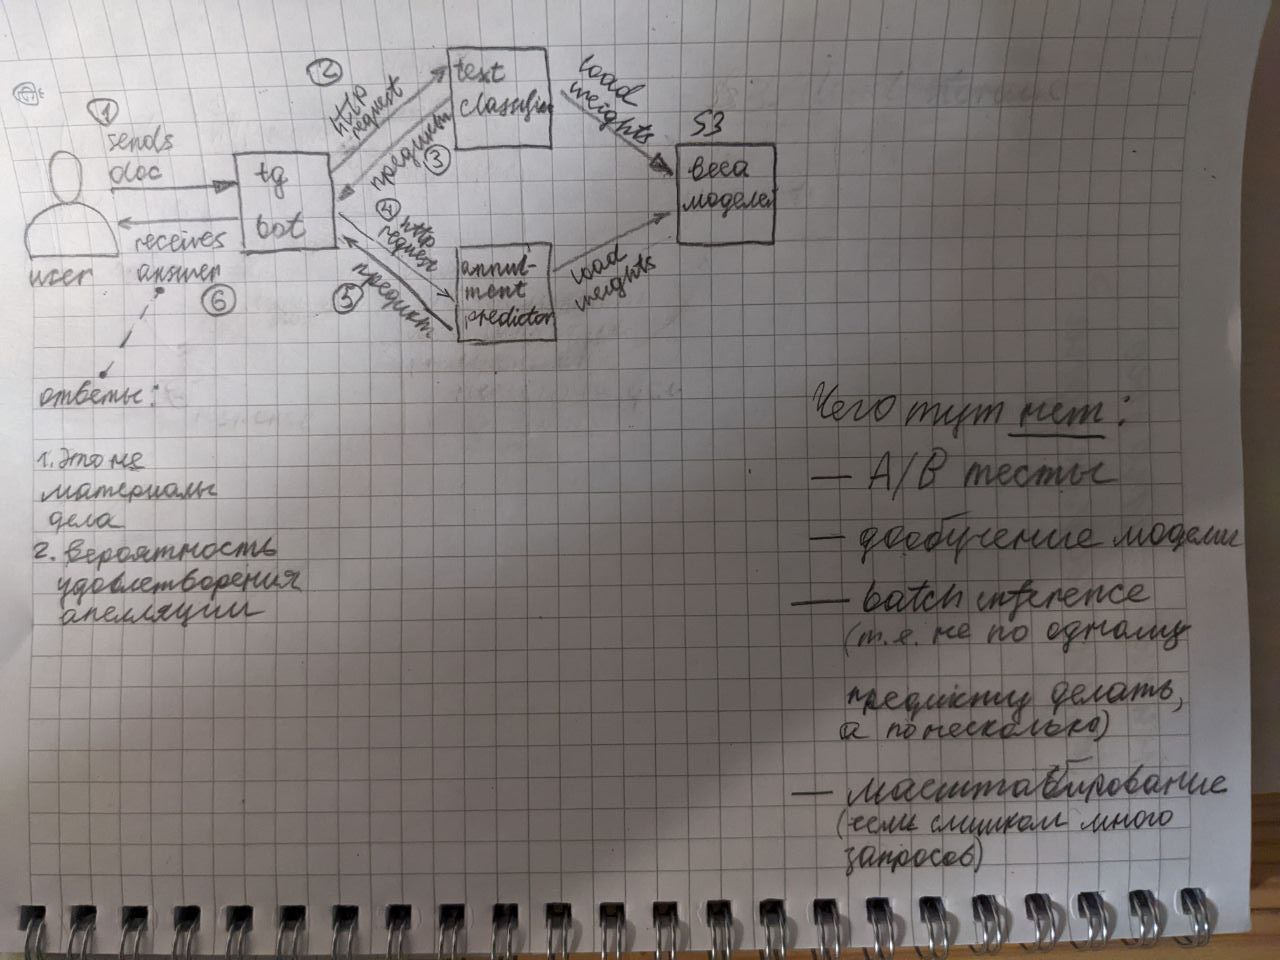 ①
sends
doc
user
receives
answer
⑥
tg
bot
②
http
request
предикт
③
④
http
request
⑤
предикт
text
classifier
annul-
ment
predictor
load
weights
load
weights
S3
веса
моделей
ответы:
1. Это не
материалы
дела
2. Вероятность
удовлетворения
апелляции
Чего тут нет:
— A/B тесты
— дообучение модели
— batch inference
(т.е. не по одному
предикту делать,
а по несколько)
— масштабирование
(если слишком много
запросов)